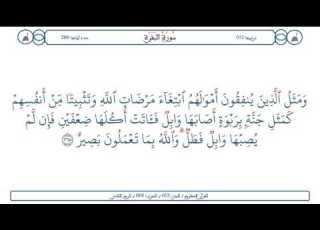 سورة البقرة
وَمَثَلُ الَّذِينَ يُنفِقُونَ أَمْوَٰلَهُمُ ابْتِغَآءَ مَرْضَاتِ اللَّهِ وَتَثْبِيتًا مِّنْ أَنفُسِهِمْ
كَمَثَلِ جَنَّةٍۭ بِرَبْوَةٍ أَصَابَهَا وَابِلٌ فَـَٔاتَتْ أُكُلَهَا ضِعْفَيْنِ فَإِن لَّمْ
يُصِبْهَا وَابِلٌ فَطَلٌّ ۗ وَاللَّهُ بِمَا تَعْمَلُونَ بَصِيرٌ